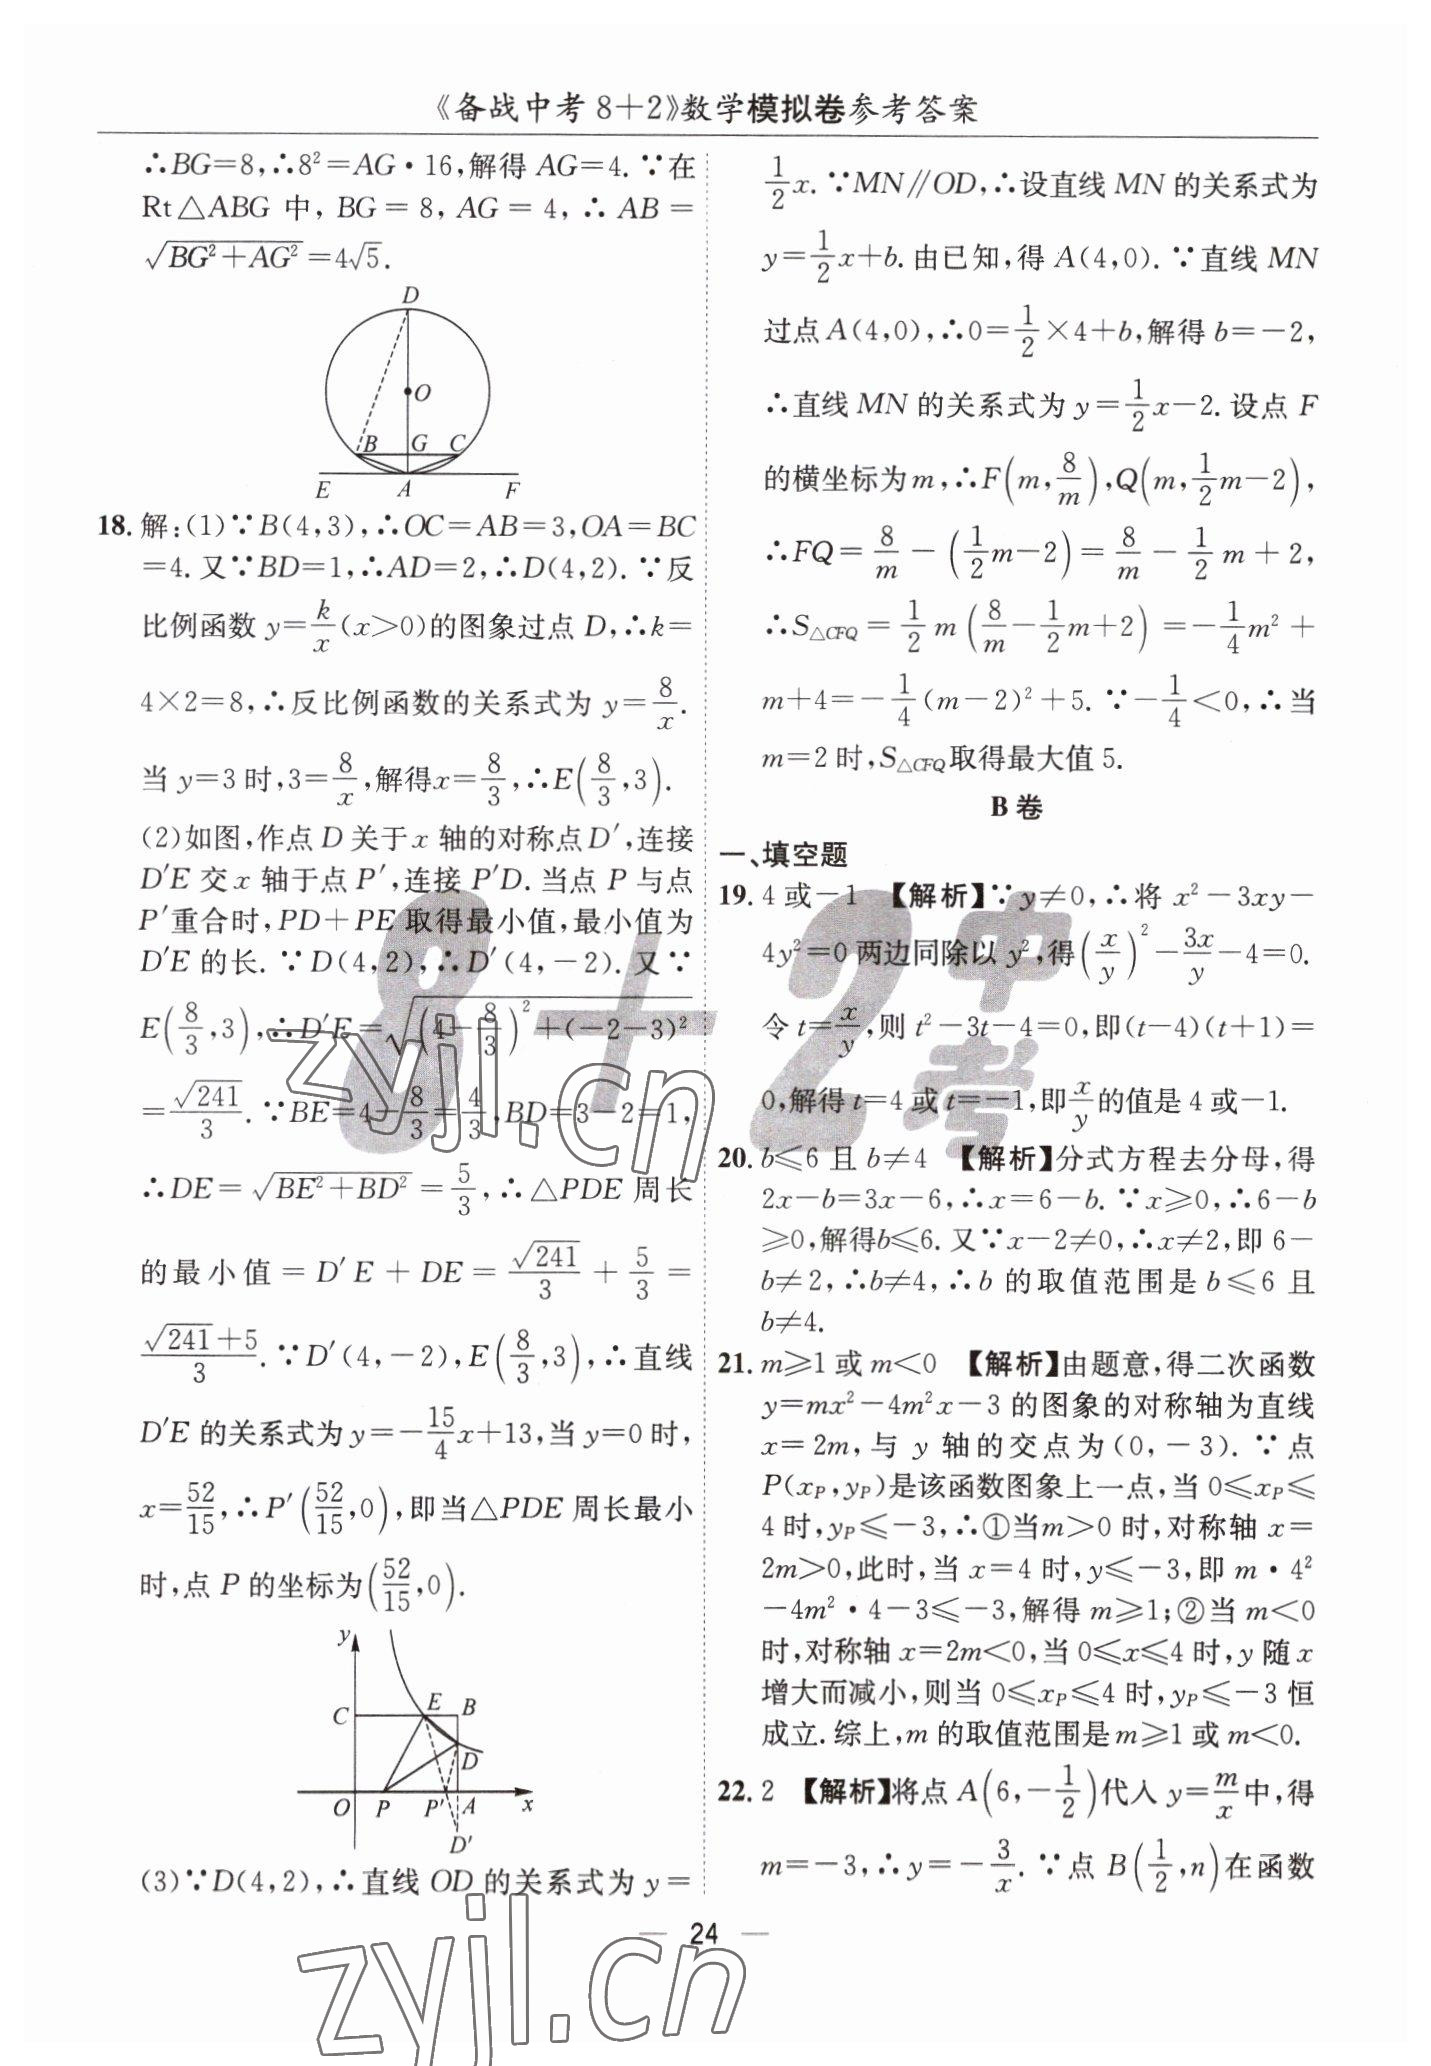 《备战中考8+2》数学模拟卷参考答案
∴BG=8,∴8²=AG·16,解得 AG=4. ∵在
Rt△ABG 中, BG=8, AG=4, ∴AB=
√(BG²+AG²)=4√5.
D
O
B G C
E A F
18. 解:(1)∵B(4,3),∴OC=AB=3,OA=BC
=4. 又∵BD=1,∴AD=2,∴D(4,2). ∵反
比例函数 y=k/x(x>0)的图象过点 D,∴k=
4×2=8,∴反比例函数的关系式为 y=8/x.
当 y=3 时,3=8/x,解得x=8/3,∴E(8/3,3).
(2)如图,作点 D 关于 x 轴的对称点D′,连接
D′E 交 x 轴于点 P′,连接 P′D. 当点 P 与点
P′重合时,PD+PE 取得最小值,最小值为
D′E 的长. ∵D(4,2),∴D′(4,-2). 又∵
E(8/3,3),∴D′E=√((4-8/3)²+(-2-3)²)
=√241/3. ∵BE=4-8/3=4/3,BD=3-2=1,
∴DE=√(BE²+BD²)=5/3,∴△PDE 周长
的最小值=D′E+DE=√241/3+5/3=
(√241+5)/3. ∵D′(4,-2),E(8/3,3),∴直线
D′E 的关系式为 y=-15/4x+13,当 y=0 时,
x=52/15,∴P′(52/15,0),即当△PDE 周长最小
时,点 P 的坐标为(52/15,0).
y
C E B
D
O P P′ A x
D′
(3)∵D(4,2),∴直线 OD 的关系式为 y=
1/2x. ∵MN∥OD,∴设直线 MN 的关系式为
y=1/2x+b. 由已知,得 A(4,0). ∵直线 MN
过点 A(4,0),∴0=1/2×4+b,解得 b=-2,
∴直线 MN 的关系式为 y=1/2x-2. 设点 F
的横坐标为 m,∴F(m,8/m),Q(m,1/2m-2),
∴FQ=8/m-(1/2m-2)=8/m-1/2m+2,
∴S△CFQ=1/2m(8/m-1/2m+2)=-1/4m²+
m+4=-1/4(m-2)²+5. ∵-1/4<0,∴当
m=2 时,S△CFQ取得最大值 5.
B 卷
一、填空题
19. 4 或-1 【解析】∵y≠0,∴将 x²-3xy-
4y²=0 两边同除以 y²,得(x/y)²-3x/y-4=0.
令 t=x/y,则 t²-3t-4=0,即(t-4)(t+1)=
0,解得 t=4 或 t=-1,即x/y的值是 4 或-1.
20. b≤6 且 b≠4 【解析】分式方程去分母,得
2x-b=3x-6,∴x=6-b. ∵x≥0,∴6-b
≥0,解得b≤6. 又∵x-2≠0,∴x≠2,即 6-
b≠2,∴b≠4,∴b 的取值范围是 b≤6 且
b≠4.
21. m≥1 或 m<0 【解析】由题意,得二次函数
y=mx²-4m²x-3 的图象的对称轴为直线
x=2m,与 y 轴的交点为(0,-3). ∵点
P(xP,yP)是该函数图象上一点,当 0≤xP≤
4 时,yP≤-3,∴①当m>0 时,对称轴 x=
2m>0,此时,当 x=4 时,y≤-3,即 m·4²
-4m²·4-3≤-3,解得 m≥1;②当 m<0
时,对称轴 x=2m<0,当 0≤x≤4 时,y 随 x
增大而减小,则当 0≤xP≤4 时,yP≤-3 恒
成立. 综上,m 的取值范围是 m≥1 或 m<0.
22. 2 【解析】将点 A(6,-1/2)代入 y=m/x中,得
m=-3,∴y=-3/x. ∵点 B(1/2,n)在函数
8+2中考
zyjl.cn
— 24 —
zyjl.cn